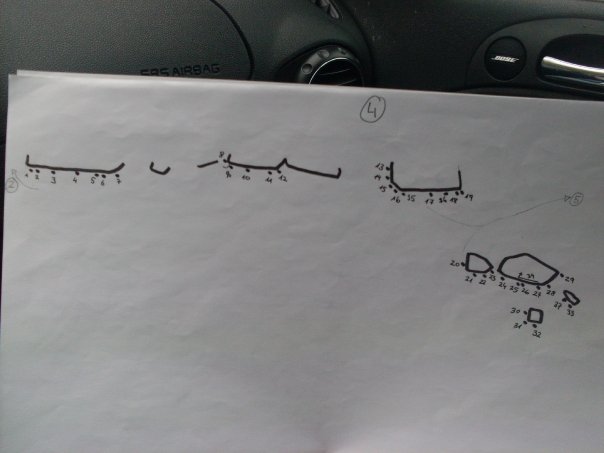 SRS AIRBAG
BOSE
4
2
1 2 3 4 5 6 7
8 9 10 11 12
13
14
15 16 35 17 36 18 19
5
20
21 22 23 24 25 26 27 28 29
34
37 33
30
31 32